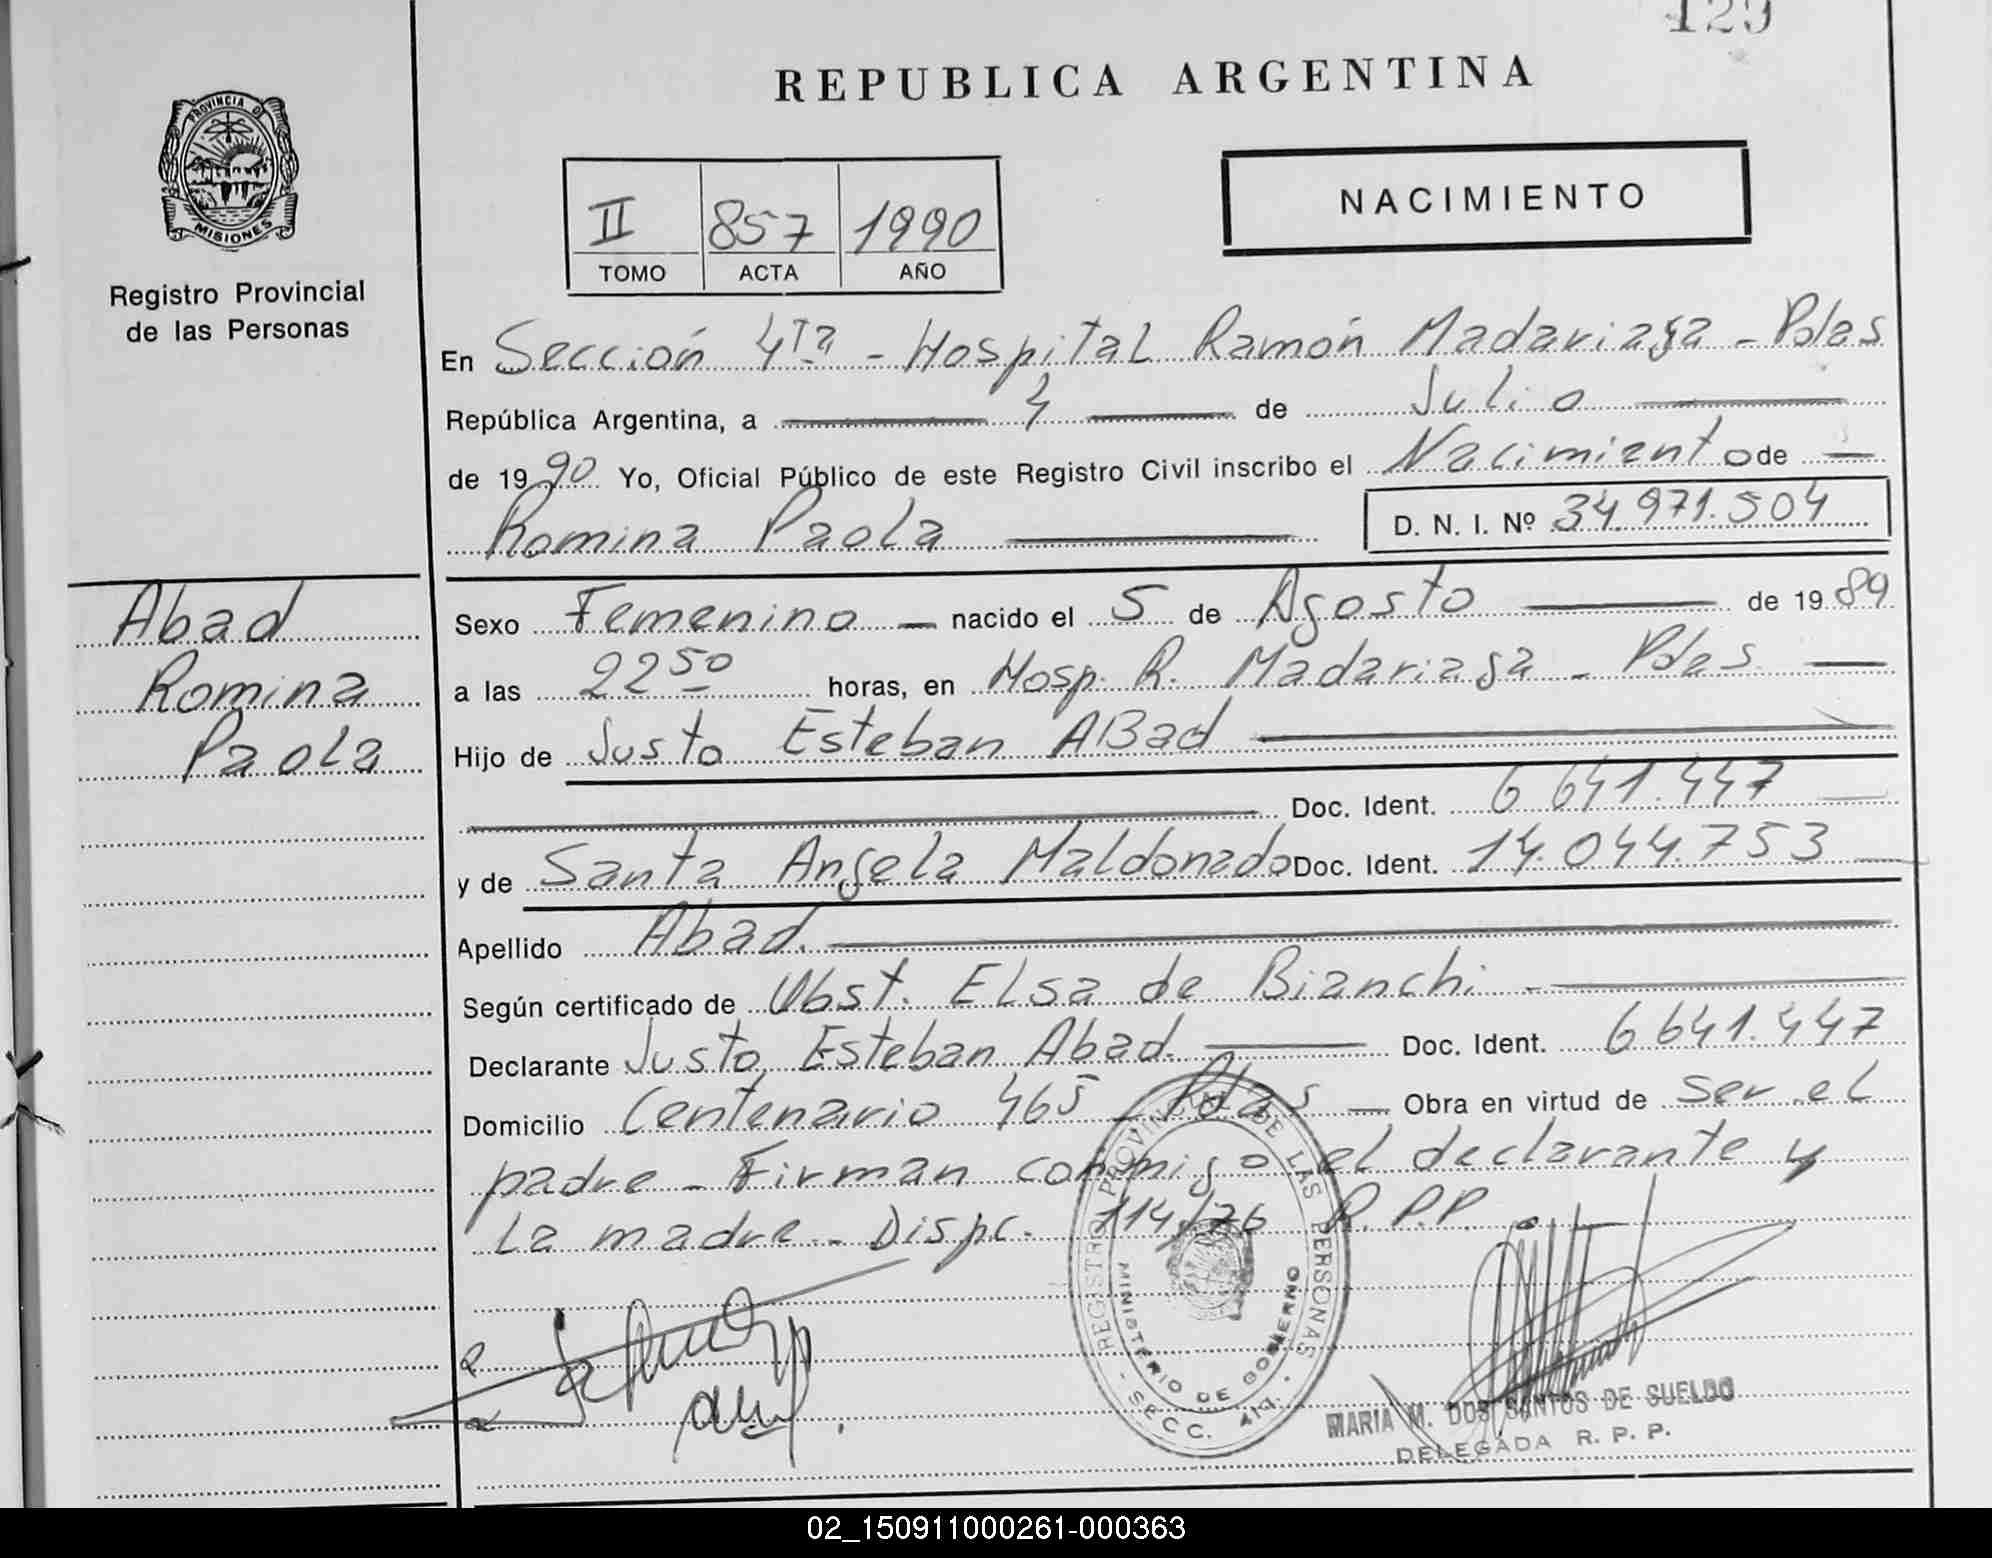 129
REPUBLICA ARGENTINA
PROVINCIA DE
MISIONES
Registro Provincial
de las Personas
NACIMIENTO
II 857 1990
TOMO ACTA AÑO
En Sección 4ta - Hospital Ramón Madariaga - Pdas
República Argentina, a 4 de Julio
de 1990 Yo, Oficial Público de este Registro Civil inscribo el Nacimiento de
Romina Paola D. N. I. Nº 34.971.504
Abad
Romina
Paola
Sexo Femenino nacido el 5 de Agosto de 1989
a las 22 50 horas, en Hosp. R. Madariaga - Pdas
Hijo de Justo Esteban ABad
Doc. Ident. 6 641.447
y de Santa Angela Maldonado Doc. Ident. 14.044.753
Apellido Abad.
Según certificado de Obst. Elsa de Bianchi -
Declarante Justo Esteban Abad. Doc. Ident. 6 641.447
Domicilio Centenario 465 - Pdas Obra en virtud de ser el
padre - Firman conmigo el declarante y
la madre - Dispc. 114/76 R.P.P.
REGISTRO PROVINCIAL DE LAS PERSONAS
MINISTERIO DE GOBIERNO
- SECC. 4ta. -
MARIA M. DOS SANTOS DE SUELDO
DELEGADA R. P. P.
02_150911000261-000363